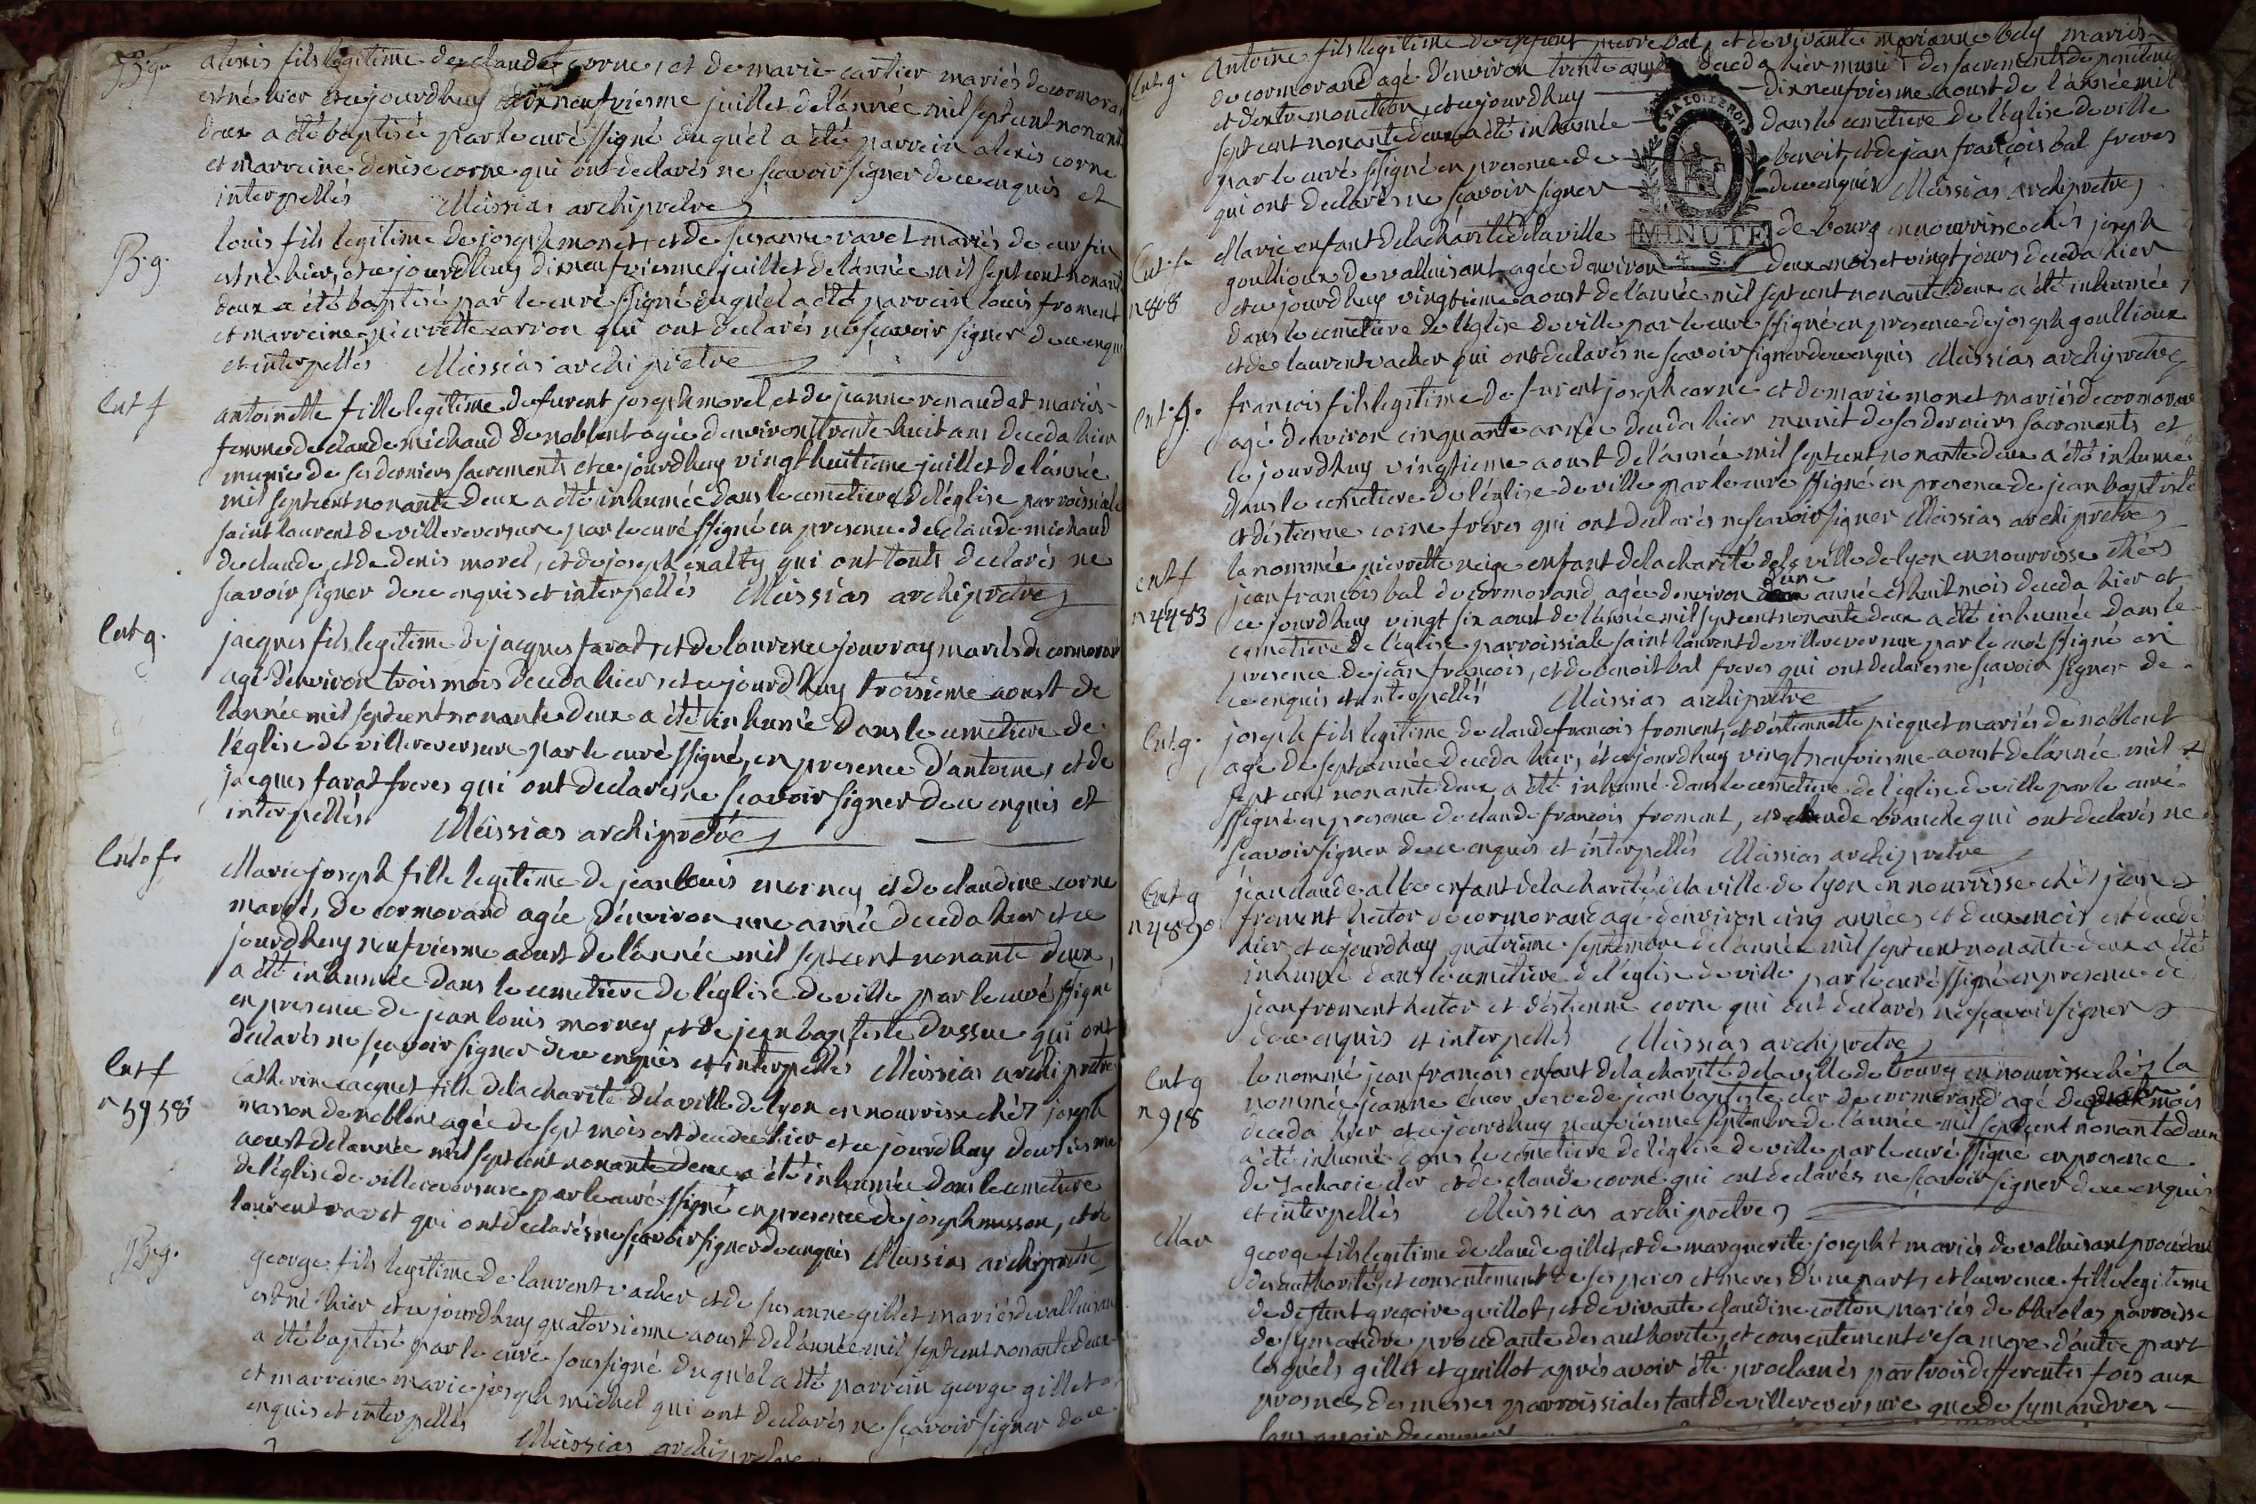 B.g.
alexis fils legitime de claude corne, et de marie cartier mariés de cormoran
est né hier et ce jourdhuy dix neufviesme juillet de l'année mil sept cent nonante
deux a été baptisé par le curé ssigné duquel a été parrein alexis corne
et marreine denise corne qui ont declarés ne scavoir signer de ce enquis et
interpellés Messias archiprêtre
B.g.
louis fils legitime de joseph monet, et de susanne ravet mariés de
est né hier, et ce jourdhuy dixneufviesme juillet de l'année mil sept cent nonante
deux a été baptisé par le curé ssigné duquel a été parrein louis froment
et marreine pierrette carron qui ont declarés ne scavoir signer de ce enquis
et interpellés Messias archiprêtre
Ent f
antoinette fille legitime de furent joseph morel, et de jeanne renaudet mariés
femme de claude michaud de noblent agée d'environ trente huit ans deceda hier
munie de ses derniers sacrements et ce jourdhuy vingt huitieme juillet de l'année
mil sept cent nonante deux a été inhumée dans le cemetiere de l'église parroissiale
saint laurent de villereversure par le curé ssigné en presence de claude michaud
de claude, et de denis morel, et de joseph qui ont touts declarés ne
scavoir signer de ce enquis et interpellés Messias archiprêtre
Ent g.
jacques fils legitime de jacques farat, et de laurence jouvray mariés de cormoran
agé d'environ trois mois deceda hier, et ce jourdhuy troisieme aoust de
l'année mil sept cent nonante deux a été inhumé dans le cemetiere de
l'église de villereversure par le curé ssigné, en presence d'antoine, et de
jacques farat freres qui ont declarés ne scavoir signer de ce enquis et
interpellés Messias archiprêtre
Ent. f.
Marie joseph fille legitime de jean louis mornay et de claudine corne
mariés, de cormorand agée d'environ une année deceda hier et ce
jourdhuy neufviesme aoust de l'année mil sept cent nonante deux,
a été inhumée dans le cemetiere de l'église de ville par le curé ssigné
en presence de jean louis mornay et de jean baptiste dussuc qui ont
declarés ne scavoir signer de ce enquis et interpellés Messias archiprêtre
Ent f
n 5958
Catherine jacquet fille de la charité de la ville de lyon en nourrisse chés joseph
masson de noblent agée de sept mois est decedee hier et ce jourdhuy douzieme
aoust de l'année mil sept cent nonante deux a été inhumée dans le cemetiere
de l'église de villereversure par le curé ssigné en presence de joseph masson, et de
laurent ravet qui ont declarés ne scavoir signer de ce enquis Messias archiprêtre
B.g.
george fils legitime de laurent vacher et de susanne gillet mariés de valluisant
est né hier et ce jourdhuy quatorsieme aoust de l'année mil sept cent nonante deux
a été baptisé par le curé soussigné duquel a été parrein george gillet
et marreine marie joseph michel qui ont declarés ne scavoir signer de ce
enquis et interpellés Messias archiprêtre
Ent g.
Antoine fils legitime de defunt pierre bal, et de vivante marianne bely mariés
de cormorand agé d'environ trente ans deceda hier munit des sacrements de penitence
et d'extremonction, et ce jourdhuy dixneufviesme aoust de l'année mil
sept cent nonante deux a été inhumé dans le cemetiere de l'église de ville
par le curé ssigné en presence de benoit, et de jean françois bal freres
qui ont declarés ne scavoir signer de ce enquis Messias archiprêtre
LA LOI LE ROI
MINUTE
4. S.
Ent. f.
n 448
Marie enfant de la charité de la ville de bourg en nourrisse chés joseph
goullioux de valluisant agée d'environ deux mois et vingt jours deceda hier
et ce jourdhuy vingtieme aoust de l'année mil sept cent nonante deux a été inhumée
dans le cemetiere de l'église de ville par le curé ssigné en presence de joseph goullioux
et de laurent vacher qui ont declarés ne scavoir signer de ce enquis Messias archiprêtre
Ent. g.
françois fils legitime de furent joseph carne et de marie monet mariés de cormoran
agé d'environ cinquante année deceda hier munit de ses derniers sacrements et
ce jourdhuy vingtieme aoust de l'année mil sept cent nonante deux a été inhumé
dans le cemetiere de l'église de ville par le curé ssigné en presence de jean baptiste
et d'estienne corne freres qui ont declarés ne scavoir signer Messias archiprêtre
ent f
n 4483
la nommée pierrette neige enfant de la charité de la ville de lyon en nourrisse chés
jean françois bal de cormorand, agée d'environ d'une année et huit mois deceda hier et
ce jourdhuy vingt six aoust de l'année mil sept cent nonante deux a été inhumée dans le
cemetiere de l'église parroissiale saint laurent de villereversure par le curé ssigné en
presence de jean françois, et de benoit bal freres qui ont declarés ne scavoir signer de
ce enquis et interpellés Messias archiprêtre
Ent g.
joseph fils legitime de claude françois froment, et d'estiennette picquet mariés de noblent
agé de sept année deceda hier, et ce jourdhuy vingt neufviesme aoust de l'année mil
sept cent nonante deux a été inhumé dans le cemetiere de l'église de ville par le curé
ssigné en presence de claude françois froment, et de claude branche qui ont declarés ne
scavoir signer de ce enquis et interpellés Messias archiprêtre
Ent g
n 4890
jean claude albe enfant de la charité de la ville de lyon en nourrisse chés jean
froment hector de cormorand agé d'environ cinq années et deux mois est decedé
hier et ce jourdhuy quatrieme septembre de l'année mil sept cent nonante deux a été
inhumé dans le cemetiere de l'église de ville par le curé ssigné en presence de
jean froment hector et d'estienne corne qui ont declarés ne scavoir signer
de ce enquis et interpellés Messias archiprêtre
Ent g
n 918
le nommé jean françois enfant de la charité de la ville de bourg en nourrisse chés la
nommée jeanne veuve de jean baptiste cler de cormorand agé de mois
deceda hier et ce jourdhuy neufviesme septembre de l'année mil sept cent nonante deux
a été inhumé dans le cemetiere de l'église de ville par le curé ssigné en presence
de Zacharie cler et de claude corne qui ont declarés ne scavoir signer de ce enquis
et interpellés Messias archiprêtre
Mar
george fils legitime de claude gillet, et de marguerite josepht mariés de valluisant procédant
des authorité, et consentement de ses peres et meres d'une part, et laurence fille legitime
de deffunt gregoire guillot, et de vivante claudine cotton mariés de parroisse
de symandre procedante des authorité, et consentement de sa mere d'autre part
lesquels gillet et guillot aprés avoir été proclamés par trois differentes fois aux
prosnes des messes parroissiales tant de villereversure que de symandres
sans avoir decouvert